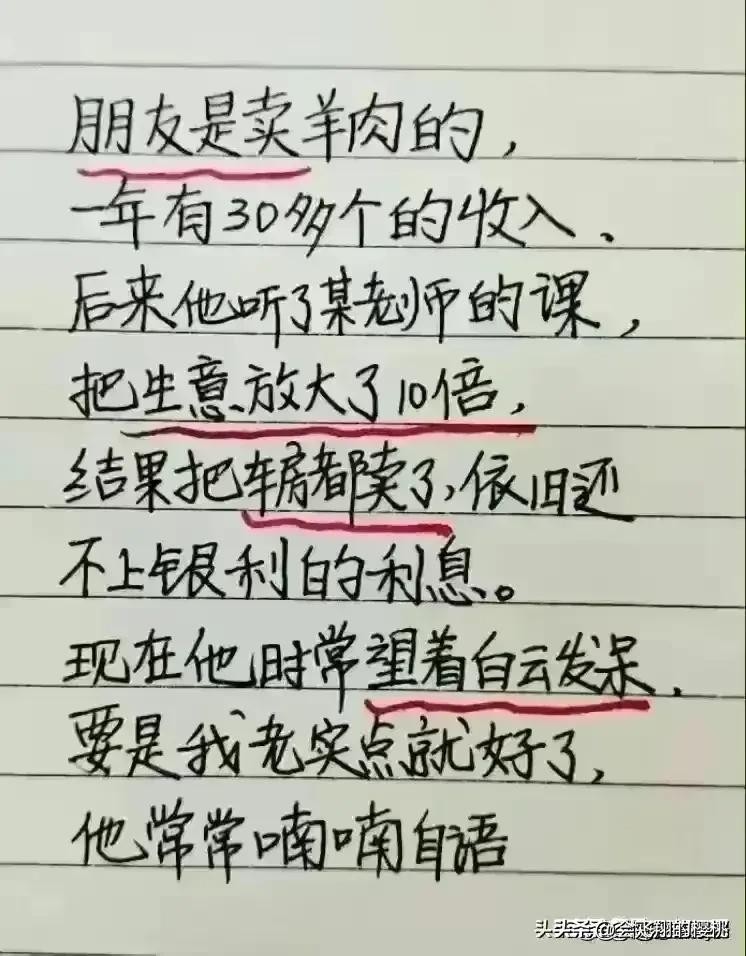 朋友是卖羊肉的，
一年有30多个的收入、
后来他听了某老师的课，
把生意放大了10倍，
结果把车房都卖了，依旧还
不上银利的利息。
现在他时常望着白云发呆，
要是我老实点就好了，
他常常喃喃自语
头条 @会飞翔的樱桃